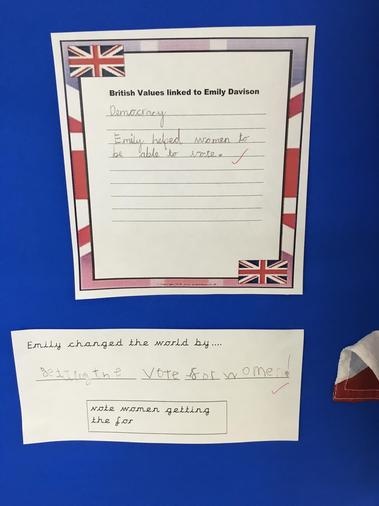 British Values linked to Emily Davison
Democracy
Emily helped women to
be able to vote.
Emily changed the world by....
getting the vote for women!
vote women getting
the for